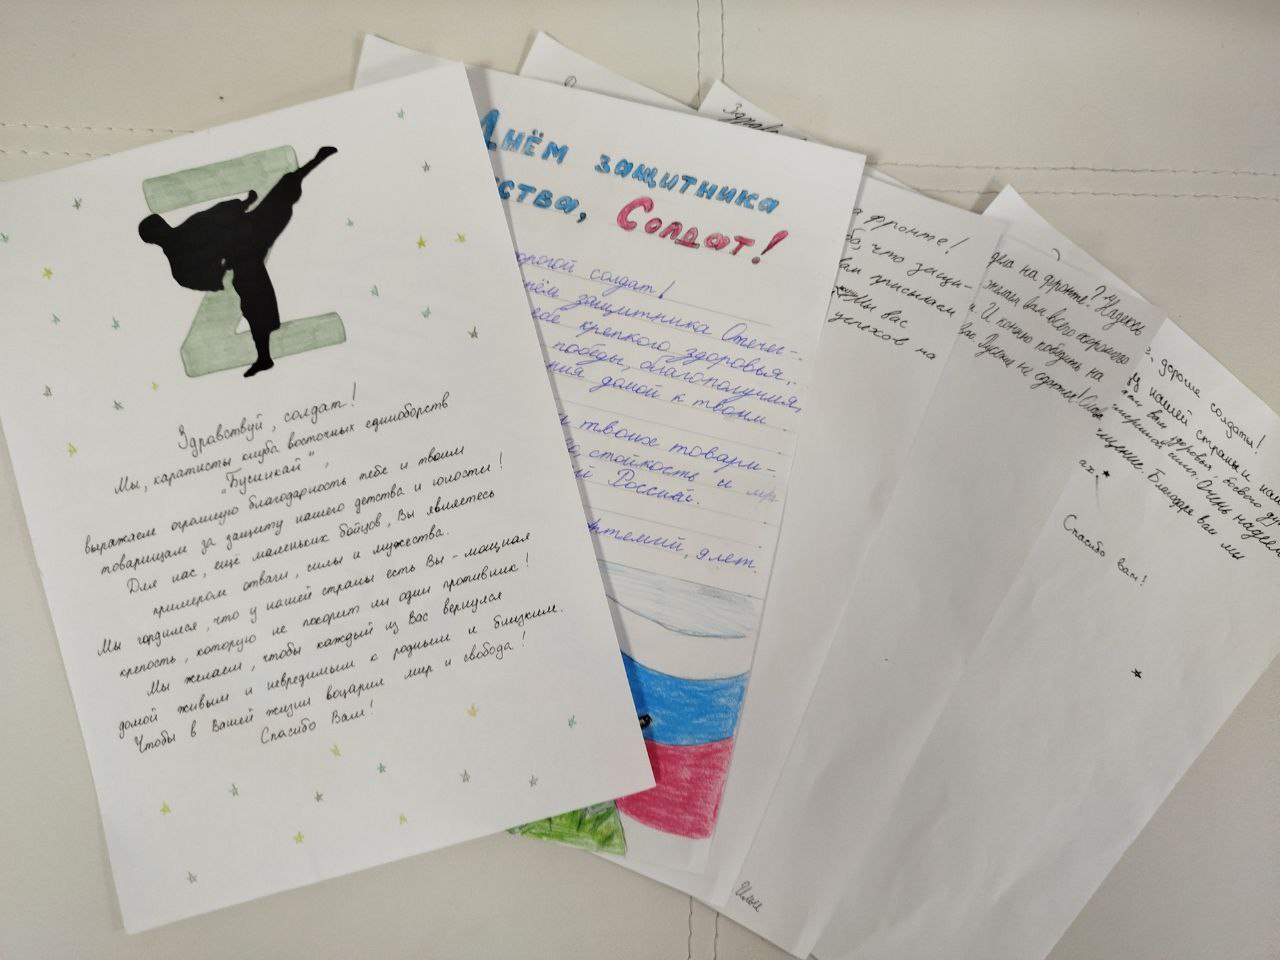 Здравствуй, солдат!
Мы, каратисты клуба восточных единоборств
"Бусинкай",
выражаем огромную благодарность тебе и твоим
товарищам за защиту нашего детства и юности!
Для нас, ещё маленьких бойцов, Вы являетесь
примером отваги, силы и мужества.
Мы гордимся, что у нашей страны есть Вы - мощная
крепость, которую не покорит ни один противник!
Мы желаем, чтобы каждый из Вас вернулся
домой живым и невредимым к родным и близким.
Чтобы в Вашей жизни воцарил мир и свобода!
Спасибо Вам!
Днём защитника
ства, Солдат!
орогой солдат!
нём защитника Отечес-
ебе крепкого здоровья,
победы, благополучия,
ния домой к твоим
твоих товари-
стойкость и
Россией.
Артемий, 9 лет.
Здрав
на фронте!
что защи-
вам присылаем
Мы вас
успехов на
дела на фронте? Надеюсь
желаю вам всего хорошего
И конечно победить на
не сдаться!
дорогие солдаты!
нашей страны и наш
вам здоровья, боевого
Очень надеем
Благодаря вам мы
Спасибо вам!